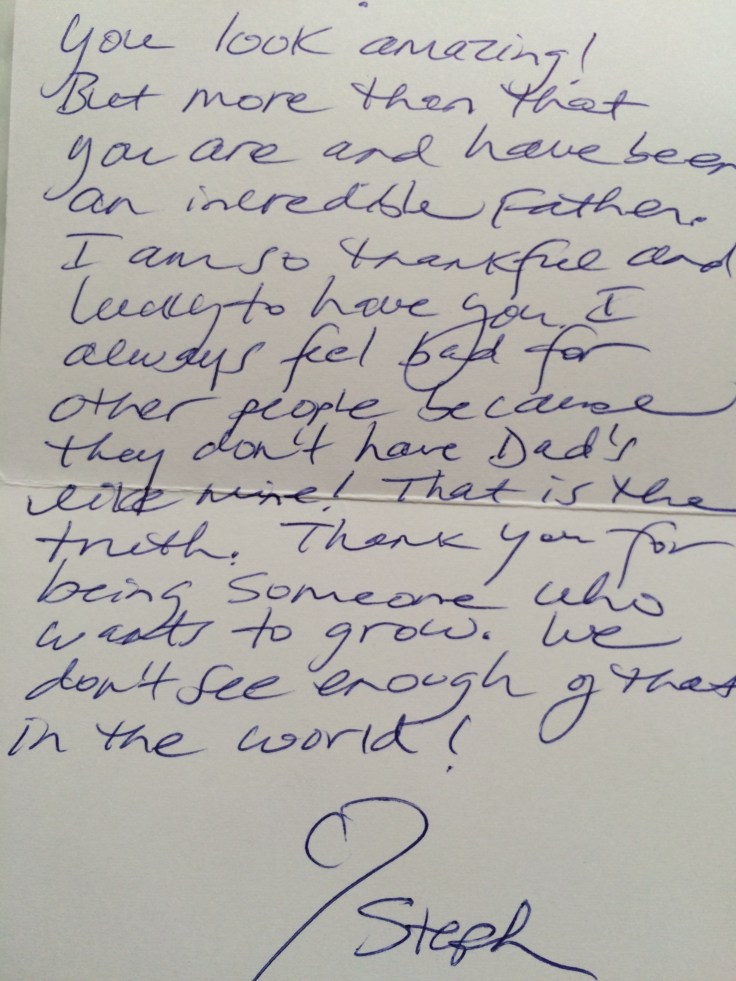 you look amazing!
But more than that
you are and have been
an incredible Father.
I am so thankful and
lucky to have you. I
always feel bad for
other people because
they don't have Dad's
like mine! That is the
truth. Thank you for
being someone who
wants to grow. We
don't see enough of that
in the world!
Steph